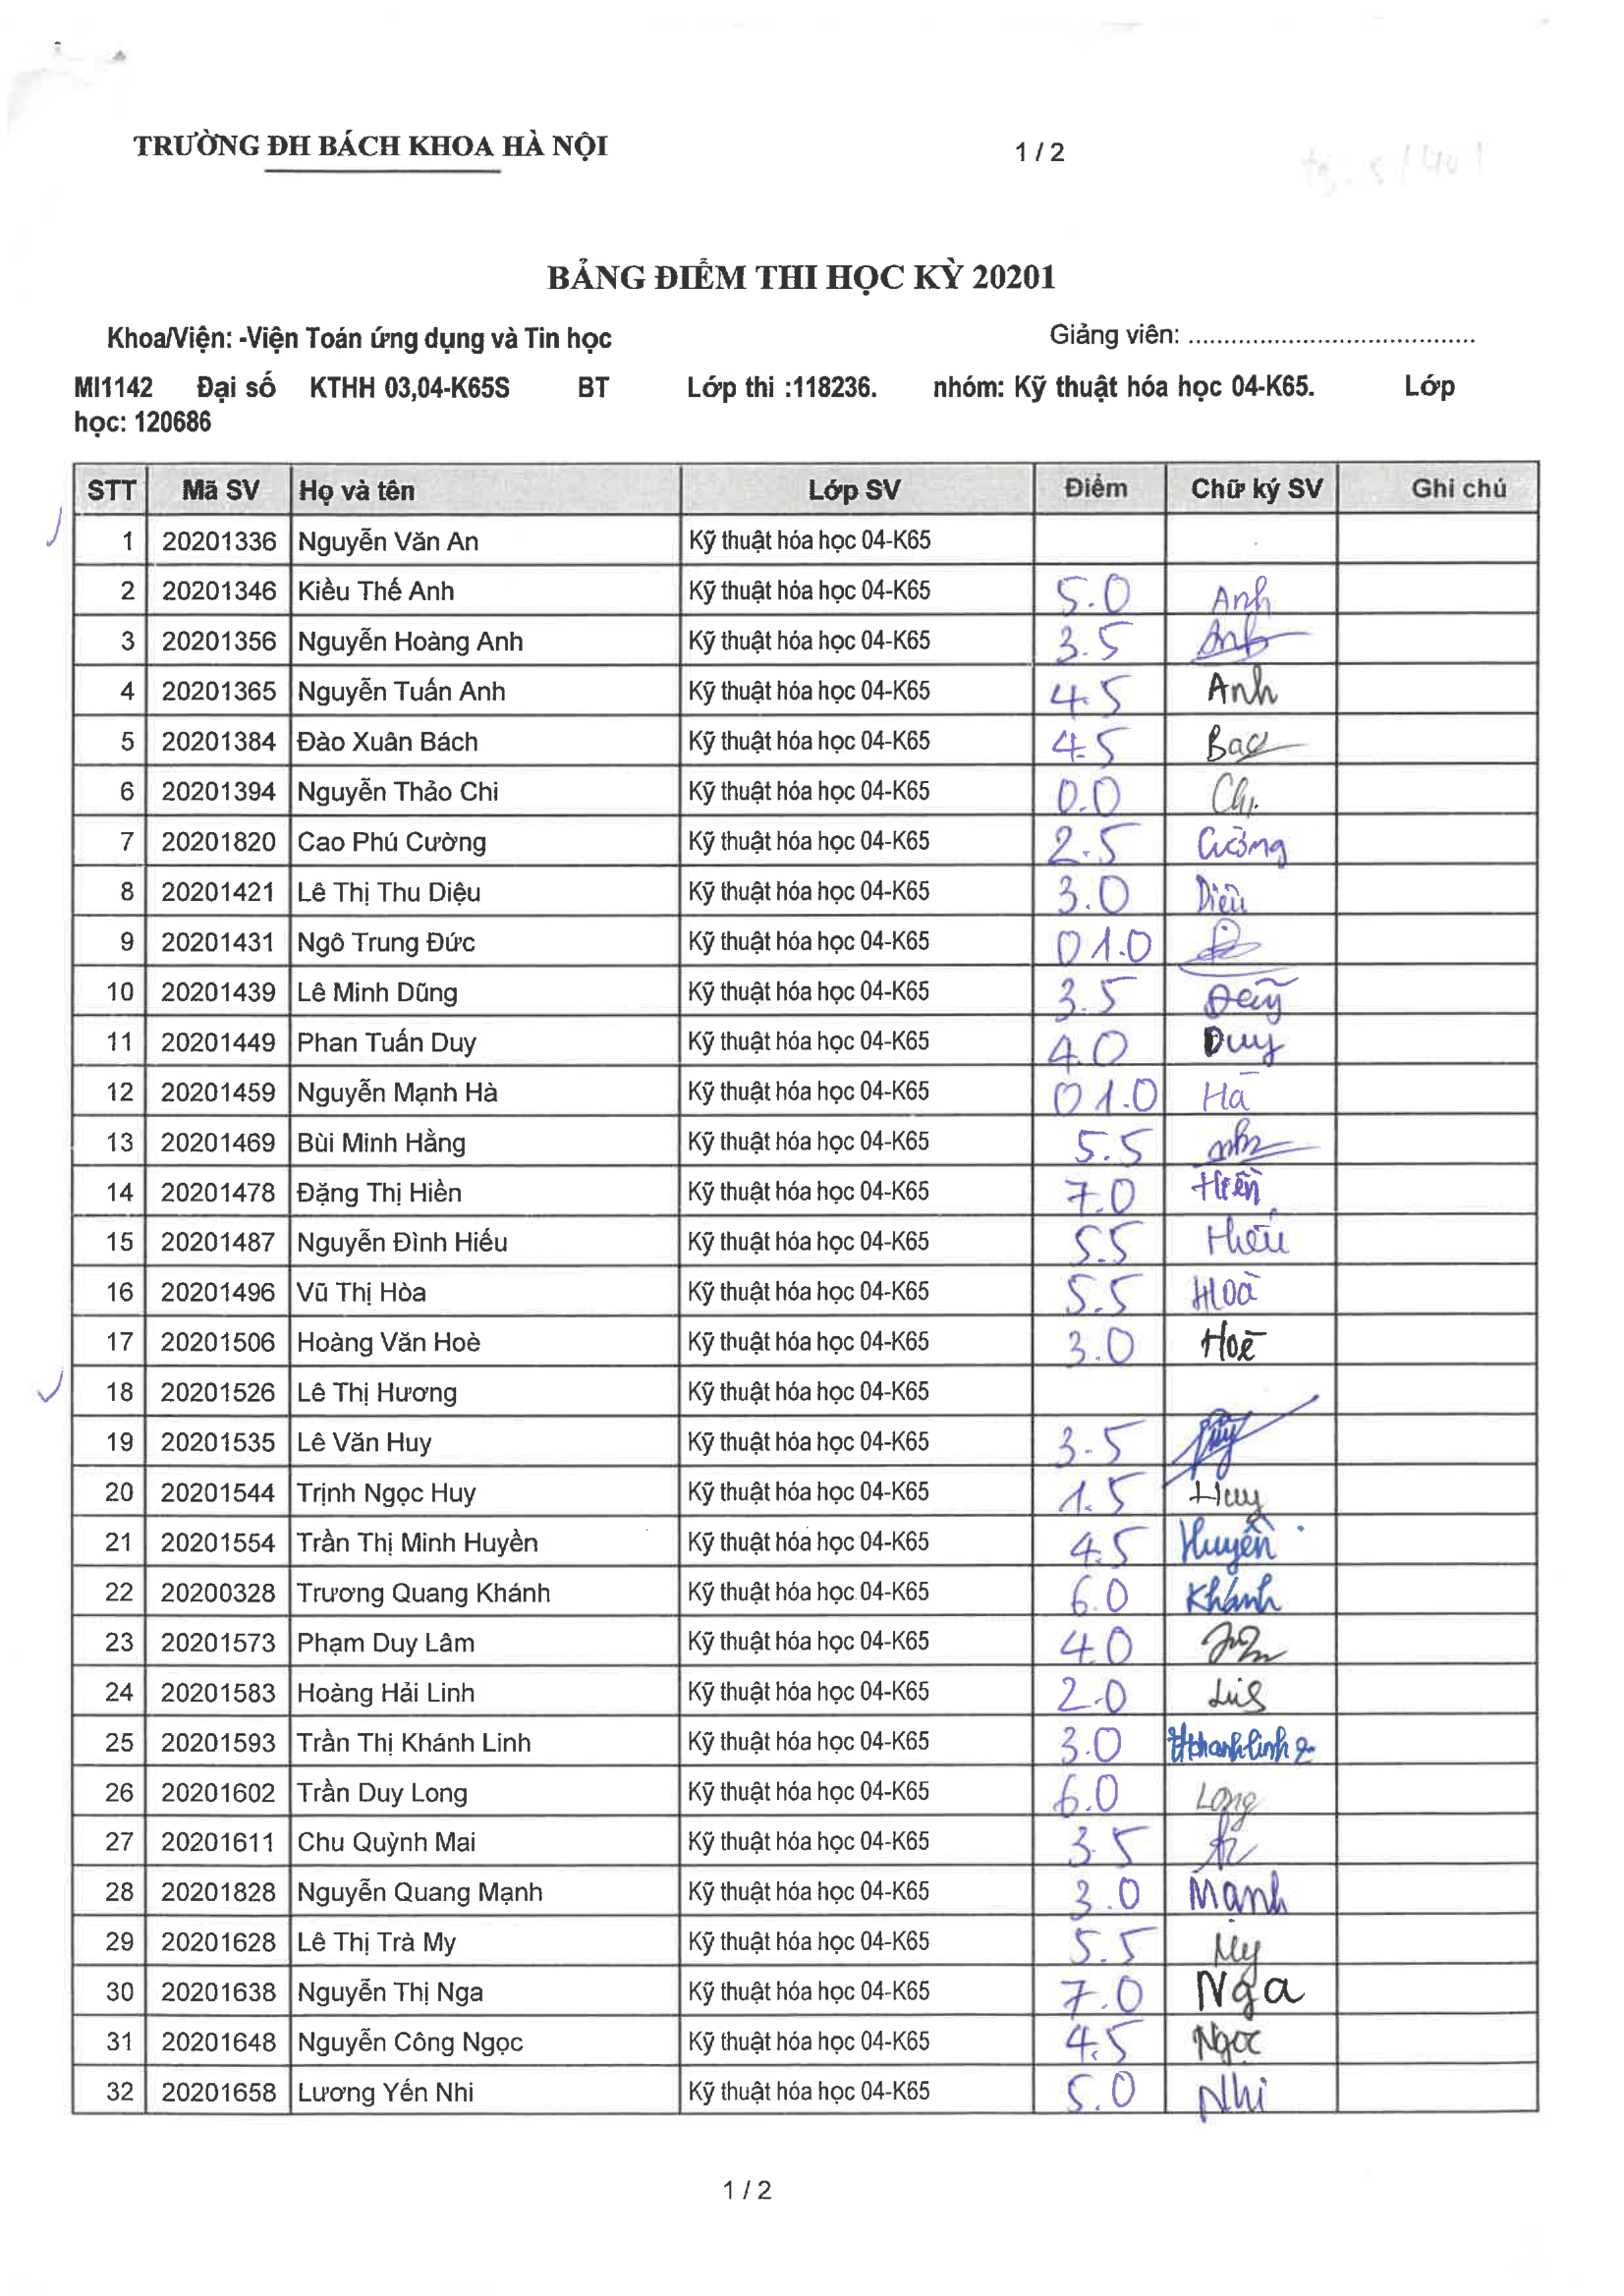 TRƯỜNG ĐH BÁCH KHOA HÀ NỘI 1 / 2
BẢNG ĐIỂM THI HỌC KỲ 20201
Khoa/Viện: -Viện Toán ứng dụng và Tin học Giảng viên: ........................................
MI1142 Đại số KTHH 03,04-K65S BT Lớp thi :118236. nhóm: Kỹ thuật hóa học 04-K65. Lớp
học: 120686
STT Mã SV Họ và tên Lớp SV Điểm Chữ ký SV Ghi chú
1 20201336 Nguyễn Văn An Kỹ thuật hóa học 04-K65
2 20201346 Kiều Thế Anh Kỹ thuật hóa học 04-K65 5.0 Anh
3 20201356 Nguyễn Hoàng Anh Kỹ thuật hóa học 04-K65 3.5 Anh
4 20201365 Nguyễn Tuấn Anh Kỹ thuật hóa học 04-K65 4.5 Anh
5 20201384 Đào Xuân Bách Kỹ thuật hóa học 04-K65 4.5
6 20201394 Nguyễn Thảo Chi Kỹ thuật hóa học 04-K65 0.0 Chi
7 20201820 Cao Phú Cường Kỹ thuật hóa học 04-K65 2.5 Cường
8 20201421 Lê Thị Thu Diệu Kỹ thuật hóa học 04-K65 3.0 Diệu
9 20201431 Ngô Trung Đức Kỹ thuật hóa học 04-K65 01.0
10 20201439 Lê Minh Dũng Kỹ thuật hóa học 04-K65 3.5
11 20201449 Phan Tuấn Duy Kỹ thuật hóa học 04-K65 4.0 Duy
12 20201459 Nguyễn Mạnh Hà Kỹ thuật hóa học 04-K65 01.0 Hà
13 20201469 Bùi Minh Hằng Kỹ thuật hóa học 04-K65 5.5
14 20201478 Đặng Thị Hiền Kỹ thuật hóa học 04-K65 7.0 Hiền
15 20201487 Nguyễn Đình Hiếu Kỹ thuật hóa học 04-K65 5.5 Hiếu
16 20201496 Vũ Thị Hòa Kỹ thuật hóa học 04-K65 5.5 Hoà
17 20201506 Hoàng Văn Hoè Kỹ thuật hóa học 04-K65 3.0 Hoè
18 20201526 Lê Thị Hương Kỹ thuật hóa học 04-K65
19 20201535 Lê Văn Huy Kỹ thuật hóa học 04-K65 3.5
20 20201544 Trịnh Ngọc Huy Kỹ thuật hóa học 04-K65 1.5 Huy
21 20201554 Trần Thị Minh Huyền Kỹ thuật hóa học 04-K65 4.5 Huyền
22 20200328 Trương Quang Khánh Kỹ thuật hóa học 04-K65 6.0 Khánh
23 20201573 Phạm Duy Lâm Kỹ thuật hóa học 04-K65 4.0
24 20201583 Hoàng Hải Linh Kỹ thuật hóa học 04-K65 2.0
25 20201593 Trần Thị Khánh Linh Kỹ thuật hóa học 04-K65 3.0
26 20201602 Trần Duy Long Kỹ thuật hóa học 04-K65 6.0 Long
27 20201611 Chu Quỳnh Mai Kỹ thuật hóa học 04-K65 3.5
28 20201828 Nguyễn Quang Mạnh Kỹ thuật hóa học 04-K65 3.0 Mạnh
29 20201628 Lê Thị Trà My Kỹ thuật hóa học 04-K65 5.5 My
30 20201638 Nguyễn Thị Nga Kỹ thuật hóa học 04-K65 7.0 Nga
31 20201648 Nguyễn Công Ngọc Kỹ thuật hóa học 04-K65 4.5 Ngọc
32 20201658 Lương Yến Nhi Kỹ thuật hóa học 04-K65 5.0 Nhi
1 / 2